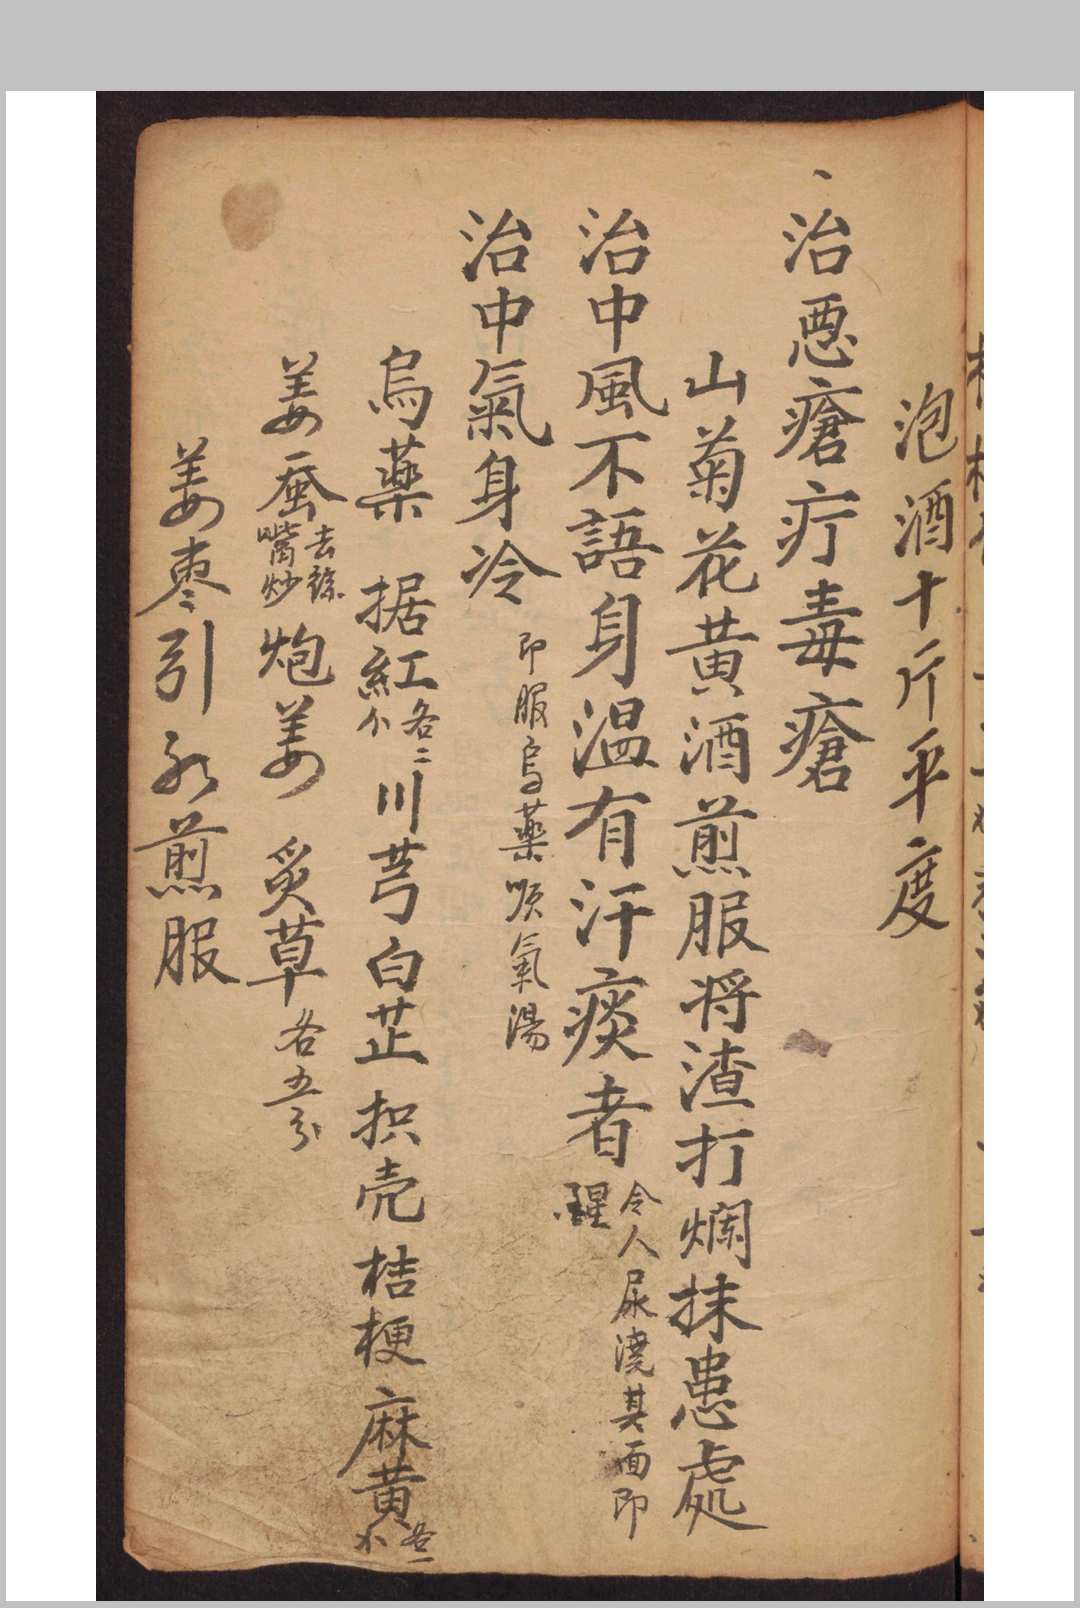 泡酒十斤平度
治惡瘡疔毒瘡
山菊花黃酒煎服将渣打爛抹患處
治中風不語身温有汗痰者 令人尿澆其面即醒
治中氣身冷 即服烏藥順氣湯
烏藥 据紅各二 川芎白芷枳壳桔梗麻黃各一
姜蚕去絲嘴炒 炮姜 炙草各五分
姜枣引水煎服